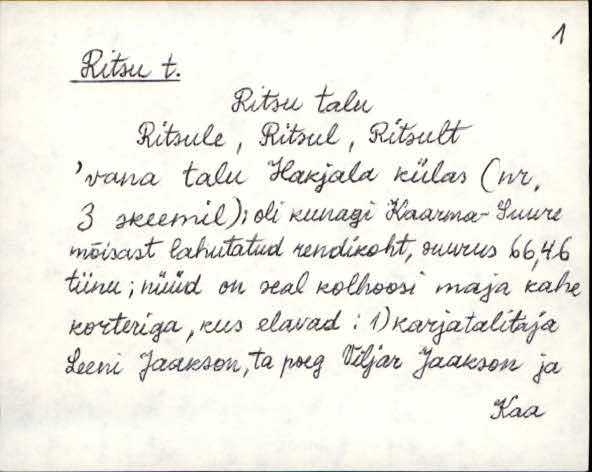 1
Ritsu t.
Ritsu talu
Ritsule, Ritsul, Ritsult
'vana talu Hakjala külas (nr.
3 skeemil); oli kunagi Kaarma-Suure
mõisast lahutatud rendikoht, suurus 66,46
tiinu; nüüd on seal kolhoosi maja kahe
korteriga, kus elavad: 1) karjatalitaja
Leeni Jaakson, ta poeg Viljar Jaakson ja
Kaa